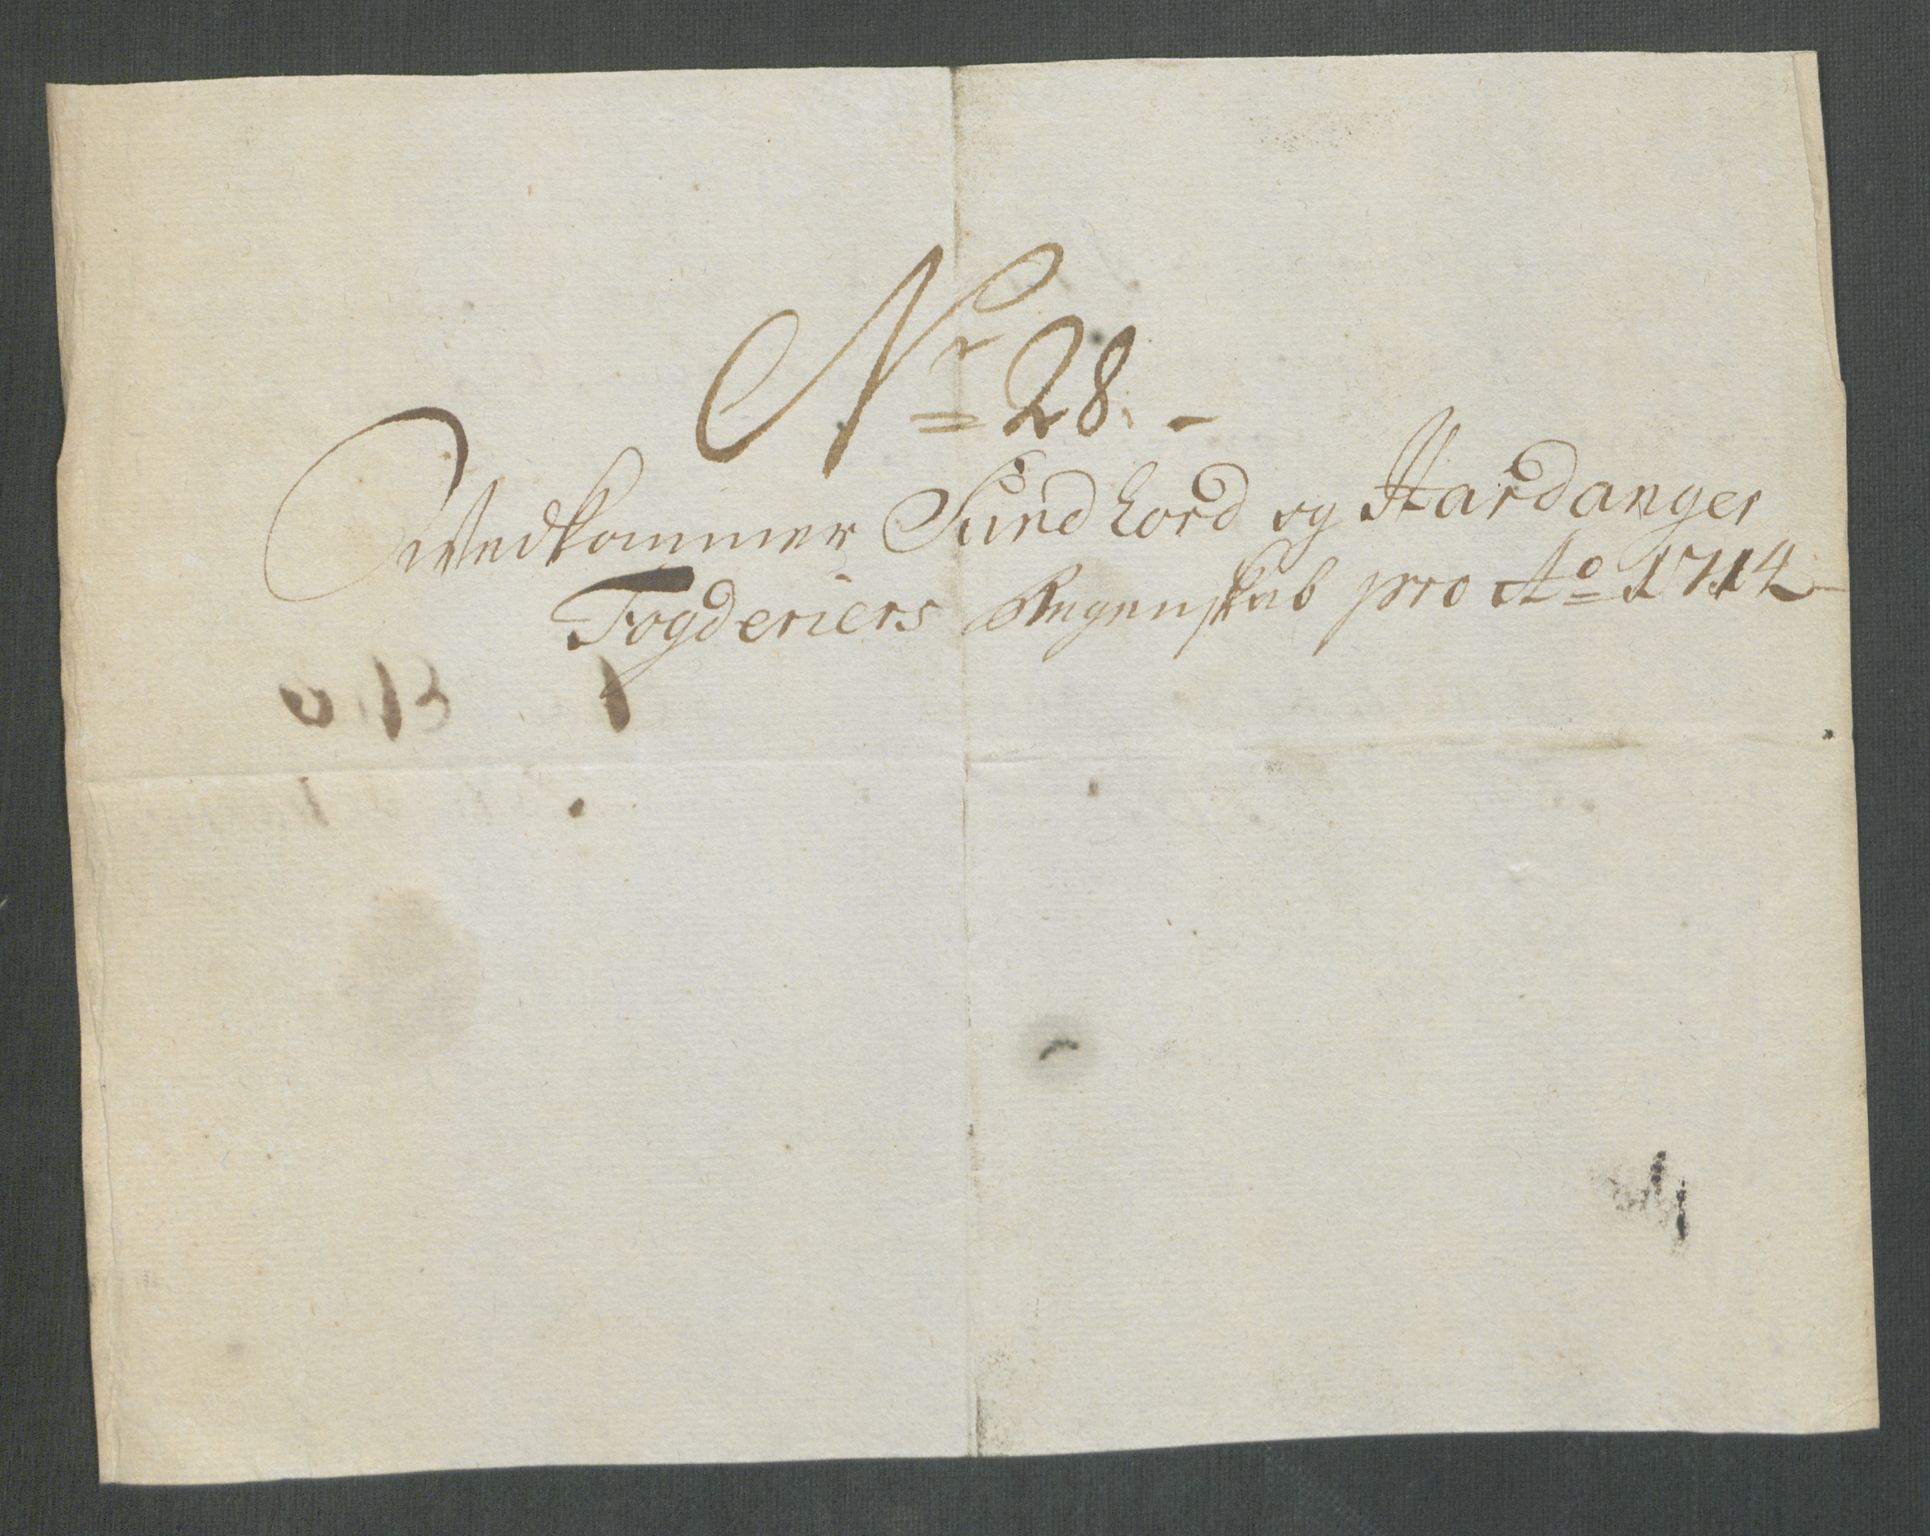 Nr 28. -
Vedkommer Sundhord og Hardanger
Fogderiers Regenskab pro Ao 1714